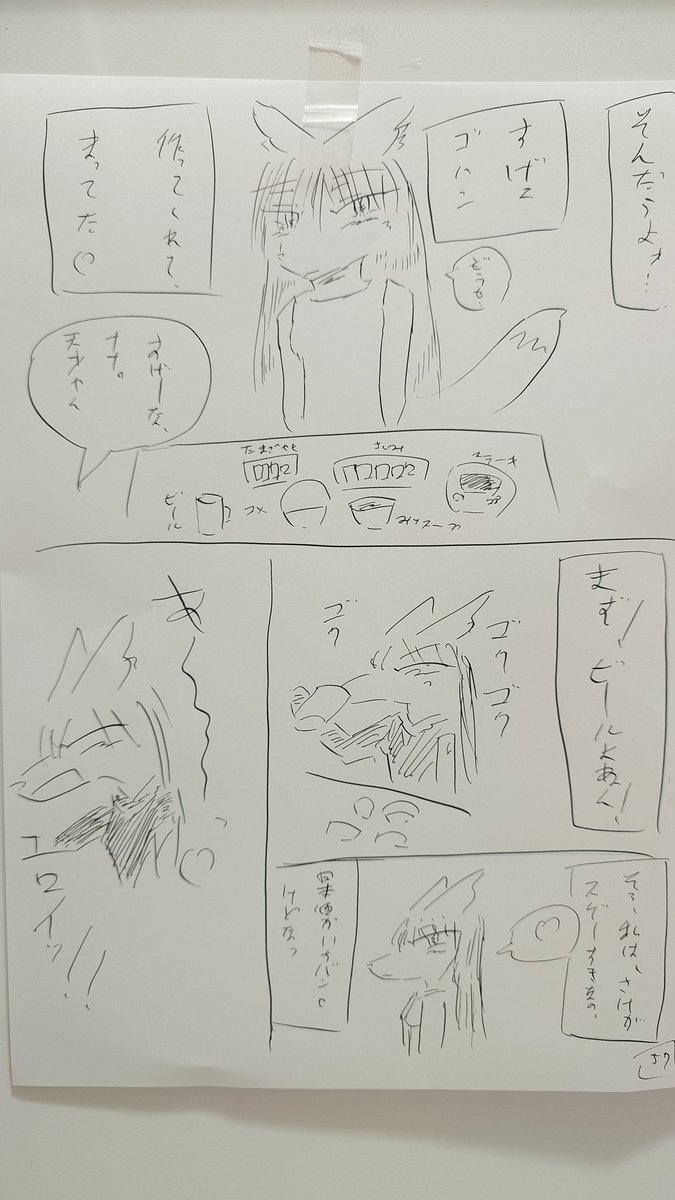 そんだうよォ!…
すげえ
ゴハン
どうも.
作ってくれて、
まってた♡
すげーな、
ナナ。
天才やん
たまごやき
さしみ
ステーキ
ビール
コメ
みそスープ
まず!ビールよあん!
ゴク
ゴクゴク
そう、私は、さけが
スゲーすきなの、
♡
日本酒がいちバン
けどなっ
あ〜♡
エロイッ!!
57